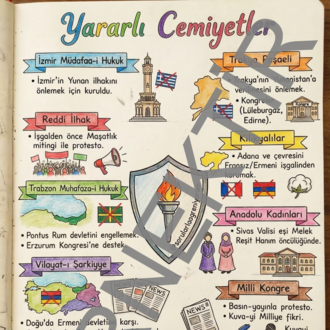 Yararlı Cemiyetler
İzmir Müdafaa-i Hukuk
• İzmir'in Yunan ilhakını
önlemek için kuruldu.
Reddi İlhak
• İşgalden önce Maşatlık
mitingi ile protesto.
Trabzon Muhafaza-i Hukuk
• Pontus Rum devletini engellemek.
• Erzurum Kongresi'ne destek.
Vilayat-ı Şarkiyye
• Doğu'da Ermeni devletine karşı.
Paşaeli
önlemek için kuruldu.
• Kongre
(Lüleburgaz,
Edirne).
• Adana ve çevresini
Fransız/Ermeni işgalinden
Anadolu Kadınları
• Sivas Valisi eşi Melek
Reşit Hanım öncülüğünde.
Milli Kongre
• Basın-yayınla protesto.
• Kuva-yi Milliye fikri.
NEWS
NEWS
ÖRNEKTİR